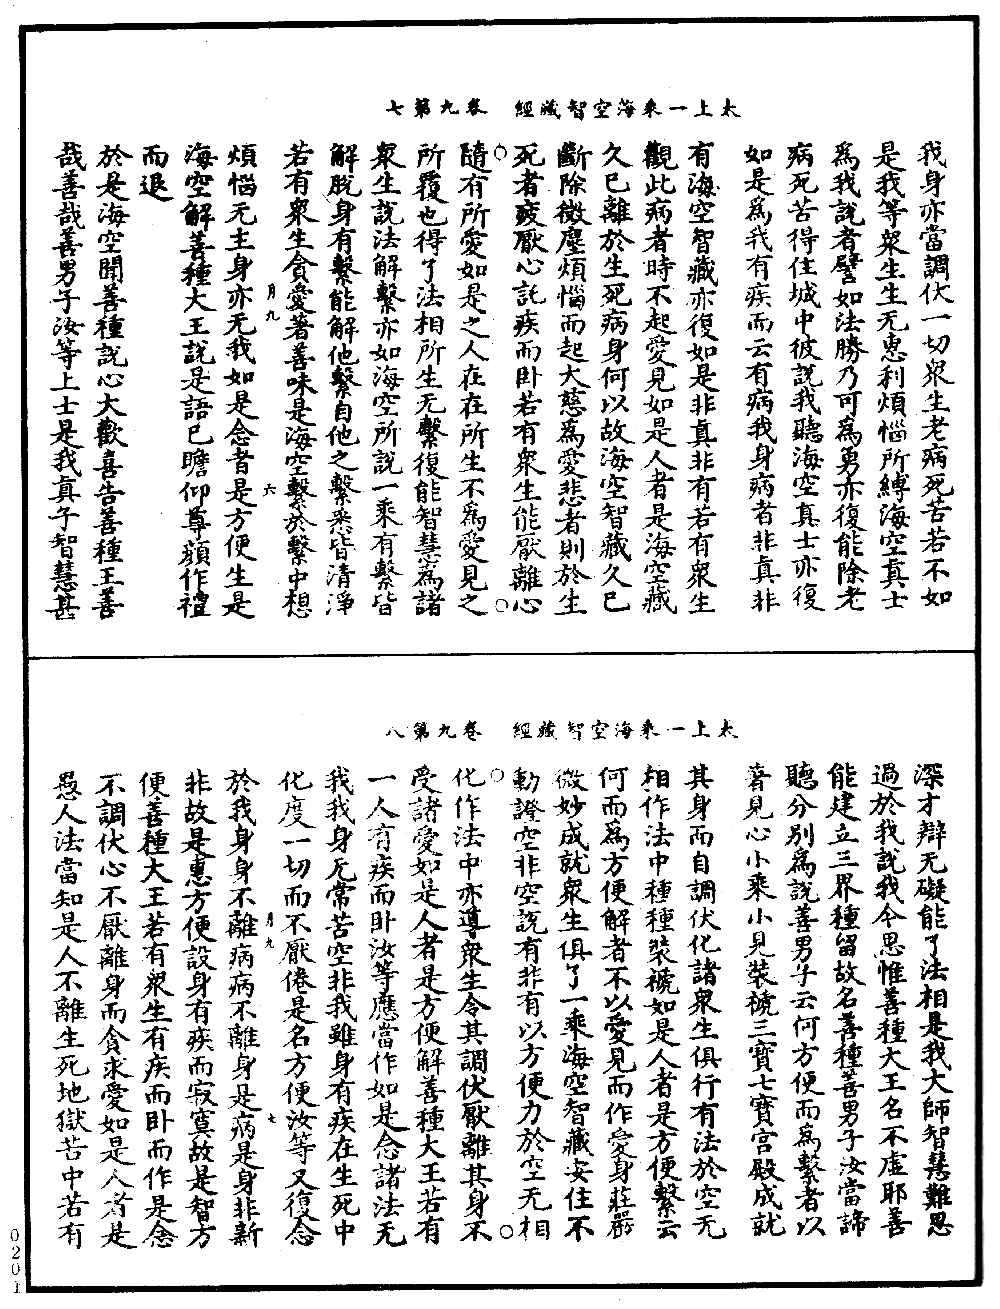 太上一乘海空智藏經　卷九第七
我身亦當調伏一切衆生老病死苦若不如
是我等衆生生无恵利煩惱所縛海空真士
爲我說者譬如法勝乃可爲勇亦復能除老
病死苦得住城中彼說我聽海空真士亦復
如是爲我有疾而云有病我身病者非真非
有海空智藏亦復如是非真非有若有衆生
觀此病者時不起愛見如是人者是海空藏
久已離於生死病身何以故海空智藏久已
斷除微塵煩惱而起大慈爲愛悲者則於生
死者疲厭心託疾而卧若有衆生能厭離心
隨有所愛如是之人在在所生不爲愛見之
所覆也得了法相所生无繫復能智慧爲諸
衆生說法解繫亦如海空所說一乘有繫皆
解脫身有繫能解他繫自他之繫悉皆清淨
若有衆生貪愛著善味是海空繫於繫中想
月九　六
煩惱无主身亦无我如是念者是方便生是
海空解善種大王說是語已瞻仰尊顏作禮
而退
於是海空聞善種說心大歡喜告善種王善
哉善哉善男子汝等上士是我真子智慧甚
太上一乘海空智藏經　卷九第八
深才辯无礙能了法相是我大師智慧難思
過於我說我今思惟善種大王名不虛耶善
能建立三界種留故名善種善男子汝當諦
聽分別爲說善男子云何方便而爲繫者以
著見心小乘小見裝褫三寶七寶宮殿成就
其身而自調伏化諸衆生俱行有法於空无
相作法中種種裝褫如是人者是方便繫云
何而爲方便解者不以愛見而作愛身莊嚴
微妙成就衆生俱了一乘海空智藏安住不
動證空非空說有非有以方便力於空无相
化作法中亦導衆生令其調伏厭離其身不
受諸愛如是人者是方便解善種大王若有
一人有疾而卧汝等應當作如是念諸法无
我我身无常苦空非我雖身有疾在生死中
化度一切而不厭倦是名方便汝等又復念
月九　七
於我身身不離病病不離身是病是身非新
非故是惠方便設身有疾而寂寞故是智方
便善種大王若有衆生有疾而卧而作是念
不調伏心不厭離身而貪求愛如是人者是
愚人法當知是人不離生死地獄苦中若有
0201